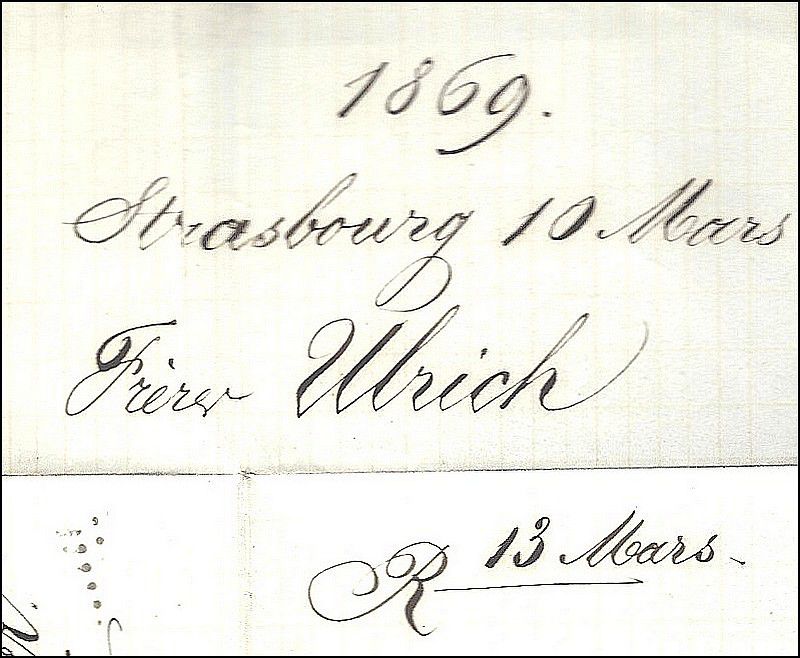 1869.
Strasbourg 10 Mars
Frères Ulrich
R 13 Mars